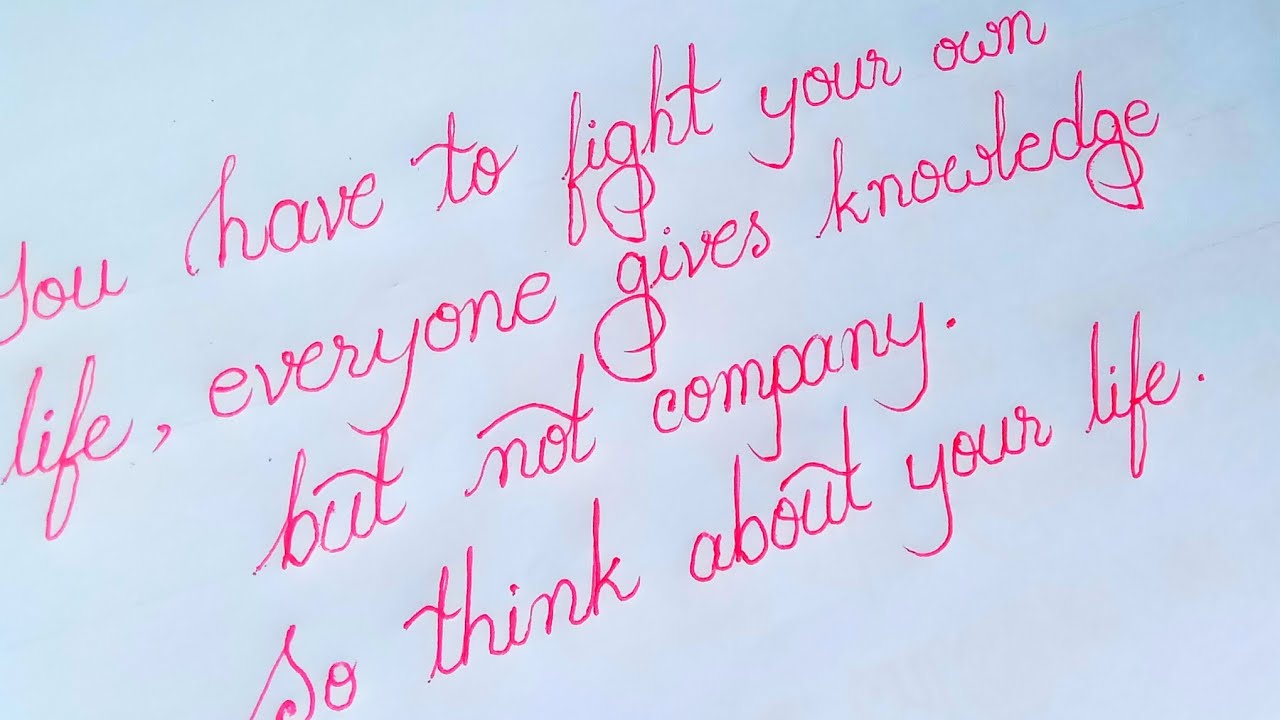 You have to fight your own
life, everyone gives knowledge
but not company.
So think about your life.